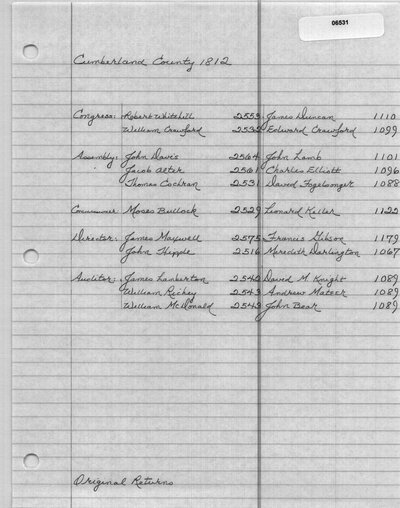 06531
Cumberland County 1812
Congress: Robert Whitehill 2559 James Duncan 1110
William Crawford 2532 Edward Crawford 1099
Assembly: John Davis 2564 John Lamb 1101
Jacob Alter 2561 Charles Elliott 1096
Thomas Cochran 2531 David Fogelsonger 1088
Commissioner Moses Bullock 2529 Leonard Keller 1122
Director: James Maxwell 2575 Francis Gibson 1179
John Hipple 2516 Meredith Darlington 1067
Auditor: James Lamberton 2540 David M. Knight 1089
William Richey 2543 Andrew Mateer 1089
William McDonald 2543 John Bear 1089
Original Returns